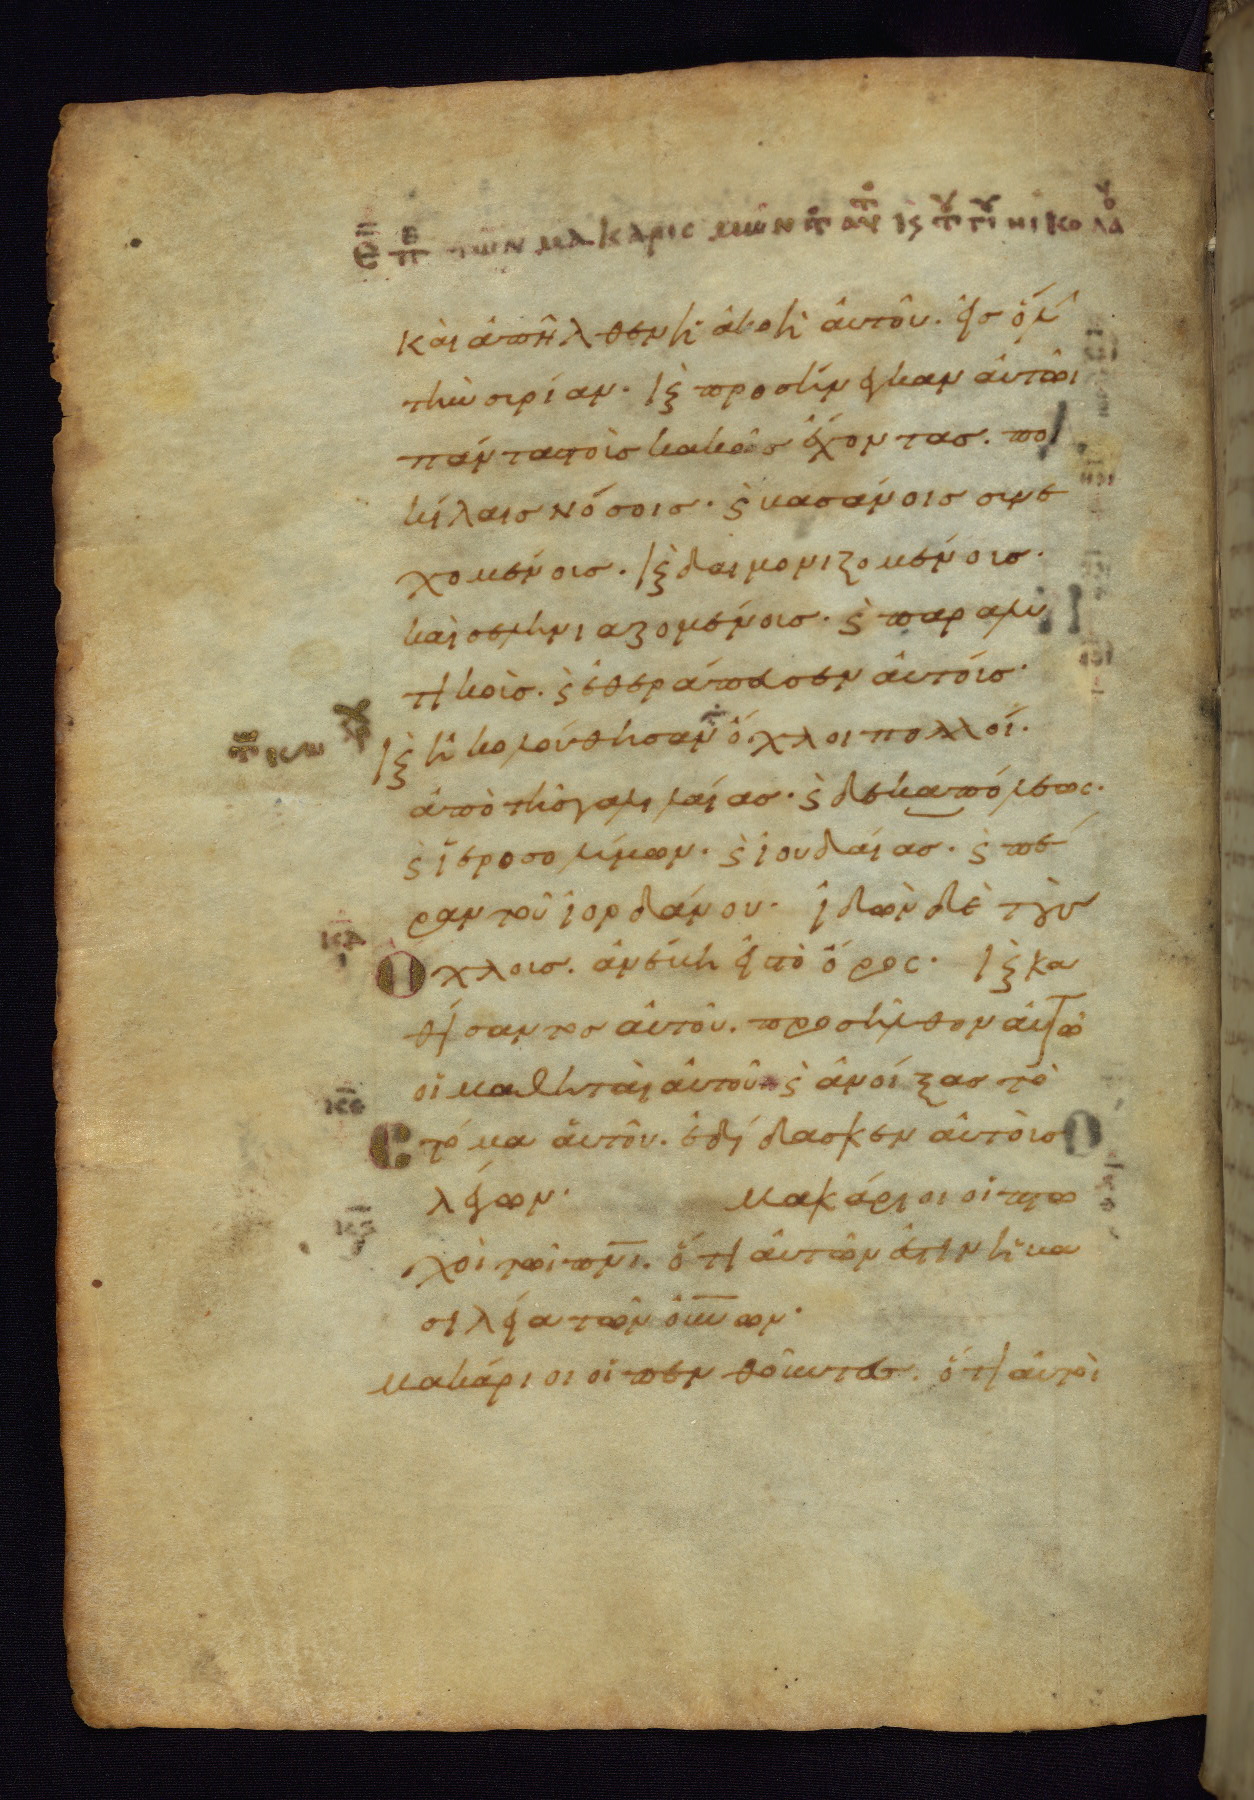 Ε περὶ τῶν μακαρισμῶν τοῦ αὐτοῦ ις τοῦ ἁγίου νικολάου
καὶ ἀπῆλθεν ἡ ἀκοὴ αὐτοῦ. εἰς ὅλην
τὴν συρίαν. καὶ προσήνεγκαν αὐτῶι
πάντας τοὺς κακῶς ἔχοντας. ποι
κίλαις νόσοις. καὶ βασάνοις συνε
χομένους. καὶ δαιμονιζομένους.
καὶ σεληνιαζομένους. καὶ παραλυ
τικούς. καὶ ἐθεράπευσεν αὐτούς.
καὶ ἠκολούθησαν ὄχλοι πολλοί.
ἀπὸ τῆς γαλιλαίας. καὶ δεκαπόλεως.
καὶ ἱεροσολύμων. καὶ ἰουδαίας. καὶ πέ
ραν τοῦ ἰορδάνου. ἰδὼν δὲ τοὺς
Ὄχλους. ἀνέβη εἰς τὸ ὄρος. καὶ κα
θίσαντος αὐτοῦ. προσῆλθον αὐτῶ
οἱ μαθηταὶ αὐτοῦ καὶ ἀνοίξας τὸ
στόμα αὐτοῦ. ἐδίδασκεν αὐτοὺς
λέγων. μακάριοι οἱ πτω
χοὶ τῶι πνι. ὅτι αὐτῶν ἐστιν ἡ βα
σιλεία τῶν οὐνων.
μακάριοι οἱ πενθοῦντες. ὅτι αὐτοὶ